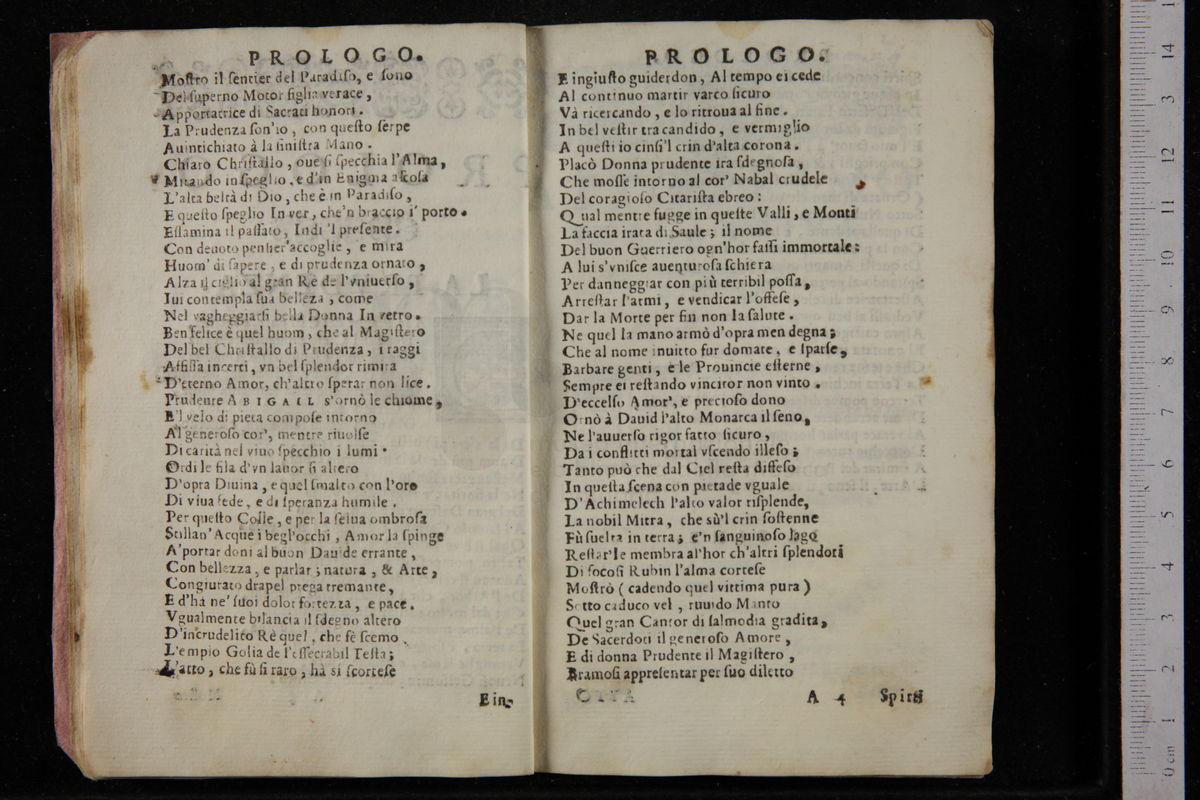 PROLOGO.
Moſtro il ſentier del Paradiſo, e ſono
Del ſuperno Motor figlia verace,
Apportatrice di Sacrati honori.
La Prudenza ſon'io, con queſto ſerpe
Auintichiato à la ſiniſtra Mano.
Chiaro Chriſtallo, oue ſi ſpecchia l'Alma,
Mirando in ſpeglio, e d'in Enigma aſcoſa
L'alta beltà di Dio, che è in Paradiſo,
E queſto ſpeglio In ver, che'n braccio i' porto.
Eſſamina il paſſato, Indi 'l preſente.
Con deuoto penſier'accoglie, e mira
Huom' di ſapere, e di prudenza ornato,
Alza il ciglio al gran Rè de l'vniuerſo,
Iui contempla ſua bellezza, come
Nel vagheggiarſi bella Donna In vetro.
Ben felice è quel huom, che al Magiſtero
Del bel Chriſtallo di Prudenza, i raggi
Affiſſa incerti, vn bel ſplendor rimira
D'eterno Amor, ch'altro ſperar non lice.
Prudente ABIGAIL s'ornò le chiome,
E'l velo di pietà compoſe intorno
Al generoſo cor', mentre riuolſe
Di carità nel viuo ſpecchio i lumi.
Ordì le fila d'vn lauor ſi altero
D'opra Diuina, e quel ſmalto con l'oro
Di viua fede, e di ſperanza humile.
Per queſto Colle, e per la ſelua ombroſa
Stillan' Acque i begl'occhi, Amor la ſpinge
A' portar doni al buon Dauide errante,
Con bellezza, e parlar; natura, & Arte,
Congiurato drapel prega tremante,
E d'hà ne' ſuoi dolor fortezza, e pace.
Vgualmente bilancia il ſdegno altero
D'incrudelito Rè quel, che fè ſcemo
L'empio Golia de l'eſſecrabil Teſta;
L'atto, che fù ſi raro, hà si ſcorteſe
E in-
PROLOGO.
E ingiuſto guiderdon, Al tempo ei cede
Al continuo martir varco ſicuro
Và ricercando, e lo ritroua al fine.
In bel veſtir tra candido, e vermiglio
A queſti io cinſi'l crin d'alta corona.
Placò Donna prudente ira ſdegnoſa,
Che moſſe intorno al cor' Nabal crudele
Del coragioſo Citariſta ebreo:
Qual mentre fugge in queſte Valli, e Monti
La faccia irata di Saule; il nome
Del buon Guerriero ogn'hor faſſi immortale:
A lui s'vniſce auenturoſa ſchiera
Per danneggiar con più terribil poſſa,
Arreſtar l'armi, e vendicar l'offeſe,
Dar la Morte per fin non la ſalute.
Ne quel la mano armò d'opra men degna;
Che al nome inuitto fur domate, e ſparſe,
Barbare genti, e le Prouincie eſterne,
Sempre ei reſtando vincitor non vinto.
D'eccelſo Amor', e precioſo dono
Ornò à Dauid l'alto Monarca il ſeno,
Ne l'auuerſo rigor fatto ſicuro,
Da i conflitti mortal vſcendo illeſo;
Tanto può che dal Ciel reſta diffeſo
In queſta ſcena con pietade vguale
D'Achimelech l'alto valor riſplende,
La nobil Mitra, che sù'l crin ſoſtenne
Fù ſuelta in terra; e'n ſanguinoſo lago
Reſtar'le membra al'hor ch'altri ſplendori
Di focoſi Rubin l'alma corteſe
Moſtrò (cadendo quel vittima pura)
Sotto caduco vel, ruuido Manto
Quel gran Cantor di ſalmodia gradita,
De Sacerdoti il generoſo Amore,
E di donna Prudente il Magiſtero,
Bramoſi appreſentar per ſuo diletto
A 4 Spirti